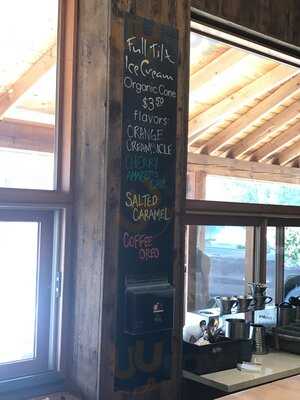 Full Tilt
Ice Cream
Organic Cone
$3.50
Flavors:
ORANGE
CREAMSICLE
CHERRY
AMARETTO
SALTED
CARAMEL
COFFEE
OREO